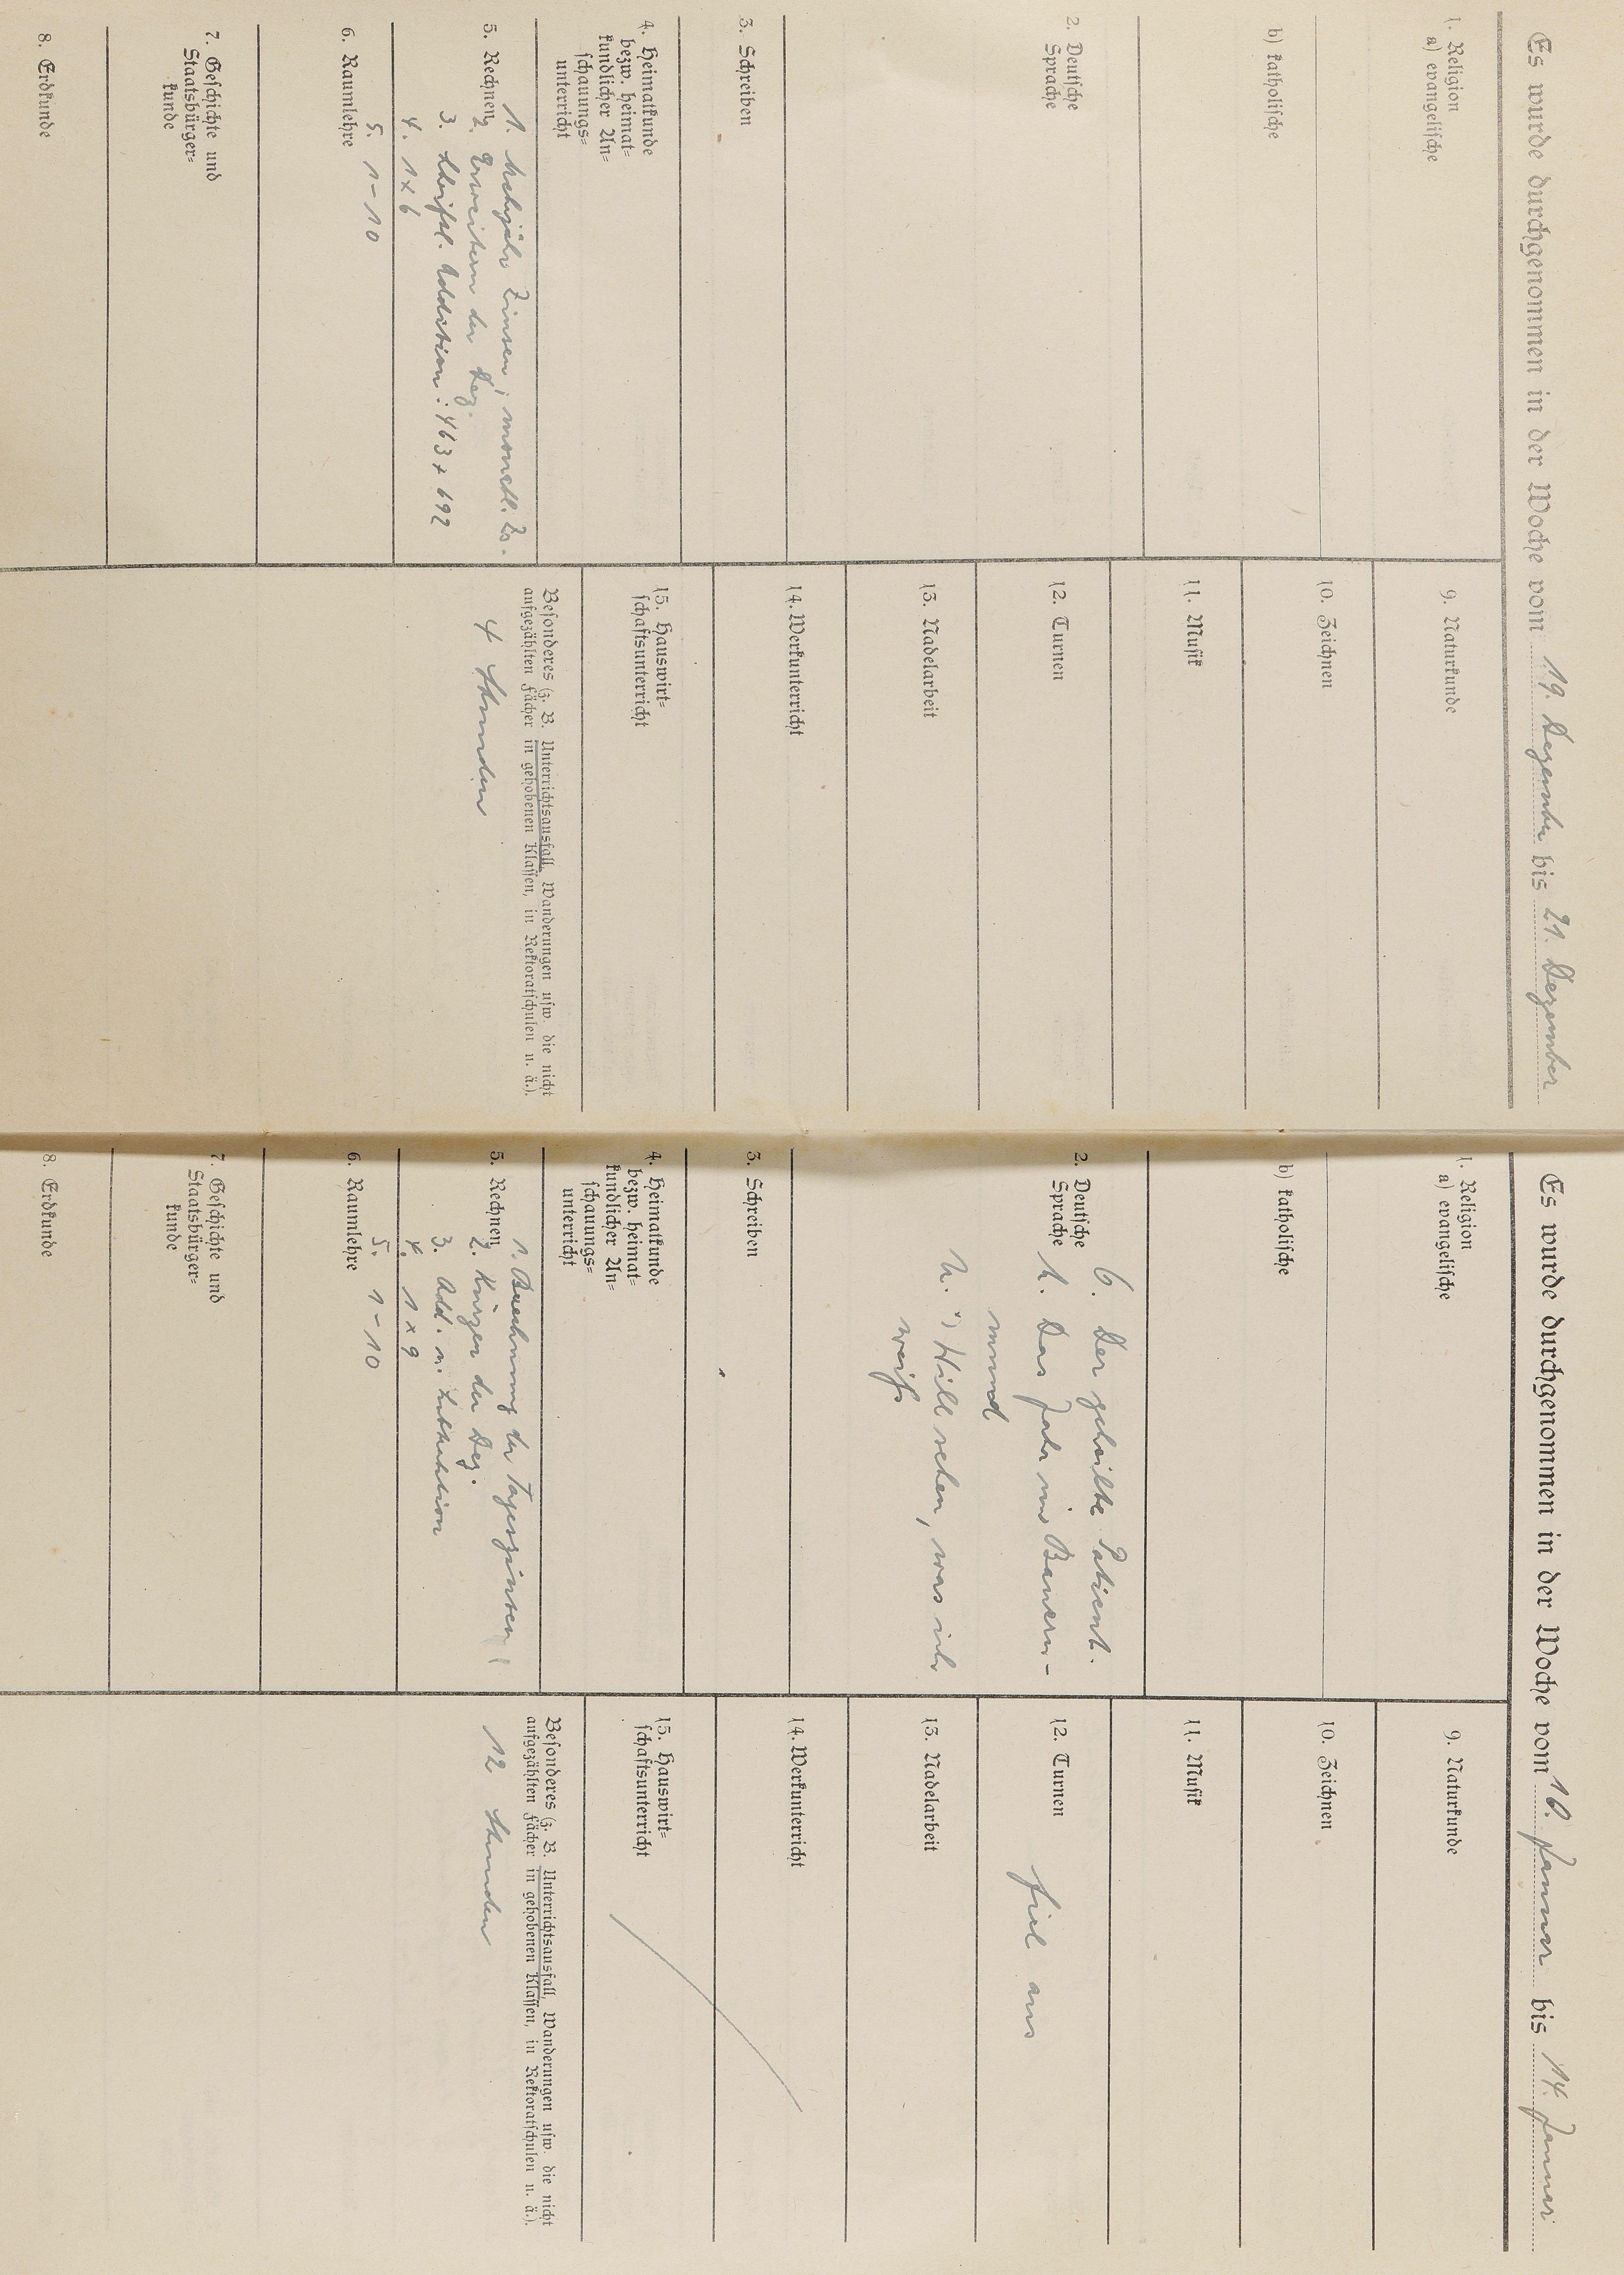 Es wurde durchgenommen in der Woche vom 19. Dezember bis 21. Dezember
1. Religion
a) evangelische
b) katholische
2. Deutsche
Sprache
3. Schreiben
4. Heimatkunde
bezw. heimat-
kundlicher An-
schauungs-
unterricht
5. Rechnen
1. Mehrjähr. Zinsen, monatl. Zs.
2. Erweitern der Dez.
3. Schriftl. Addition: 463 + 692
4. 1 x 6
5. 1 - 10
6. Raumlehre
7. Geschichte und
Staatsbürger-
kunde
8. Erdkunde
9. Naturkunde
10. Zeichnen
11. Musik
12. Turnen
13. Nadelarbeit
14. Werkunterricht
15. Hauswirt-
schaftsunterricht
Besonderes (z. B. Unterrichtsausfall, Wanderungen usw. die nicht
aufgezählten Fächer in gehobenen Klassen, in Rektoratschulen u. ä.).
4 Stunden
Es wurde durchgenommen in der Woche vom 10. Januar bis 14. Januar
1. Religion
a) evangelische
b) katholische
2. Deutsche
Sprache
Der geheilte Patient.
Das Jahr im Bauern-
mund
Will sehen, was ich
weiß
3. Schreiben
4. Heimatkunde
bezw. heimat-
kundlicher An-
schauungs-
unterricht
5. Rechnen
1. Berechnung der Tageszinsen
2. Kürzen der Dez.
3. Add. u. Subtraktion
4. 1 x 9
5. 1 - 10
6. Raumlehre
7. Geschichte und
Staatsbürger-
kunde
8. Erdkunde
9. Naturkunde
10. Zeichnen
11. Musik
12. Turnen fiel aus
13. Nadelarbeit
14. Werkunterricht
15. Hauswirt-
schaftsunterricht
Besonderes (z. B. Unterrichtsausfall, Wanderungen usw. die nicht
aufgezählten Fächer in gehobenen Klassen, in Rektoratschulen u. ä.).
12 Stunden